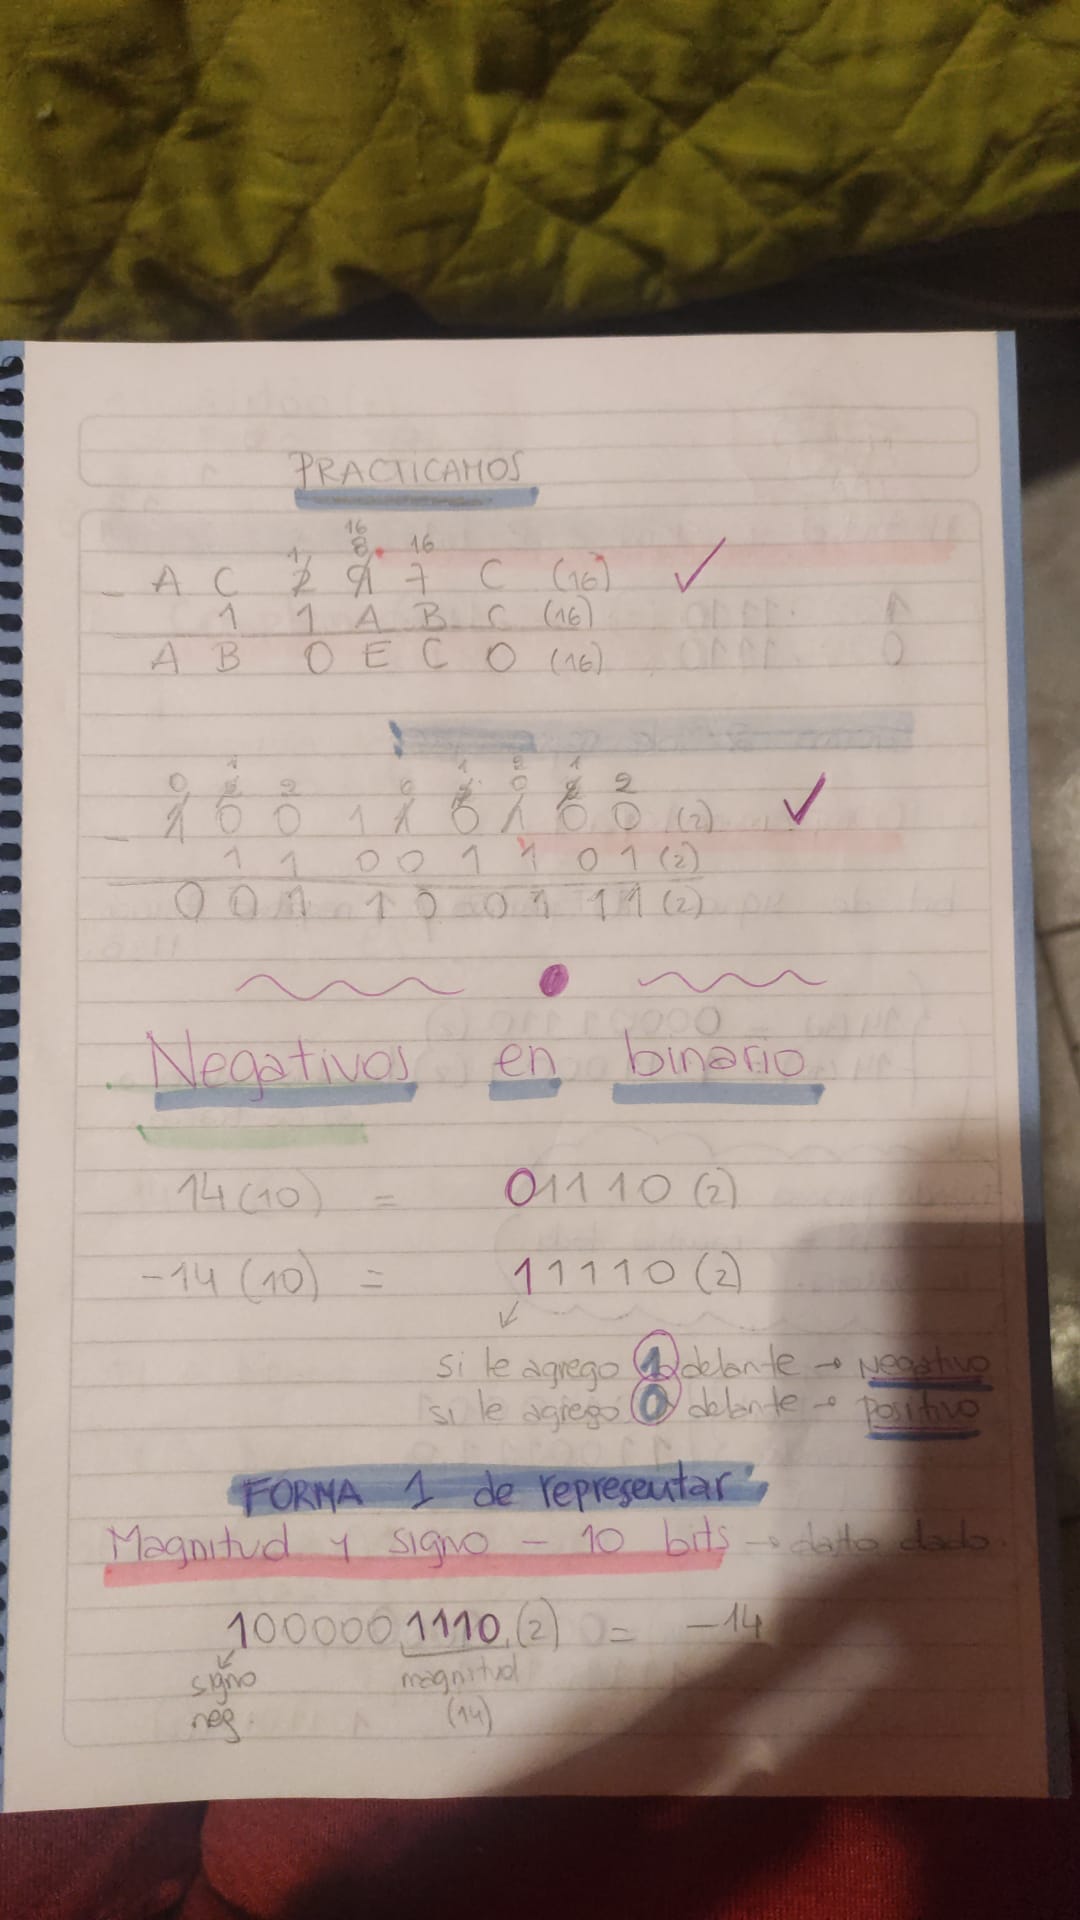 PRACTICAMOS
16
1 8. 16
- A C 2 9 7 C (16)
1 1 A B C (16)
A B 0 E C 0 (16)
1 1 2 1
0 2 2 0 2 0 2 2
- 1 0 0 1 1 0 1 0 0 (2)
1 1 0 0 1 1 0 1 (2)
0 0 1 1 0 0 1 1 1 (2)
Negativos en binario
14 (10) = 01110 (2)
-14 (10) = 11110 (2)
si le agrego 1 delante → Negativo
si le agrego 0 delante → positivo
FORMA 1 de representar
Magnitud y signo - 10 bits → datto dado.
1000001110 (2) = -14
signo magnitud
neg. (14)